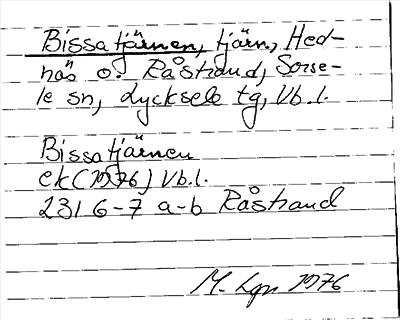 Bissatjärnen, tjärn, Hed-
näs o. Råstrand, Sorse-
le sn, Lycksele tg, Vb.l.
Bissatjärnen
ek (1976) Vb.l.
231 6-7 a-b Råstrand
M. Lgn 1976